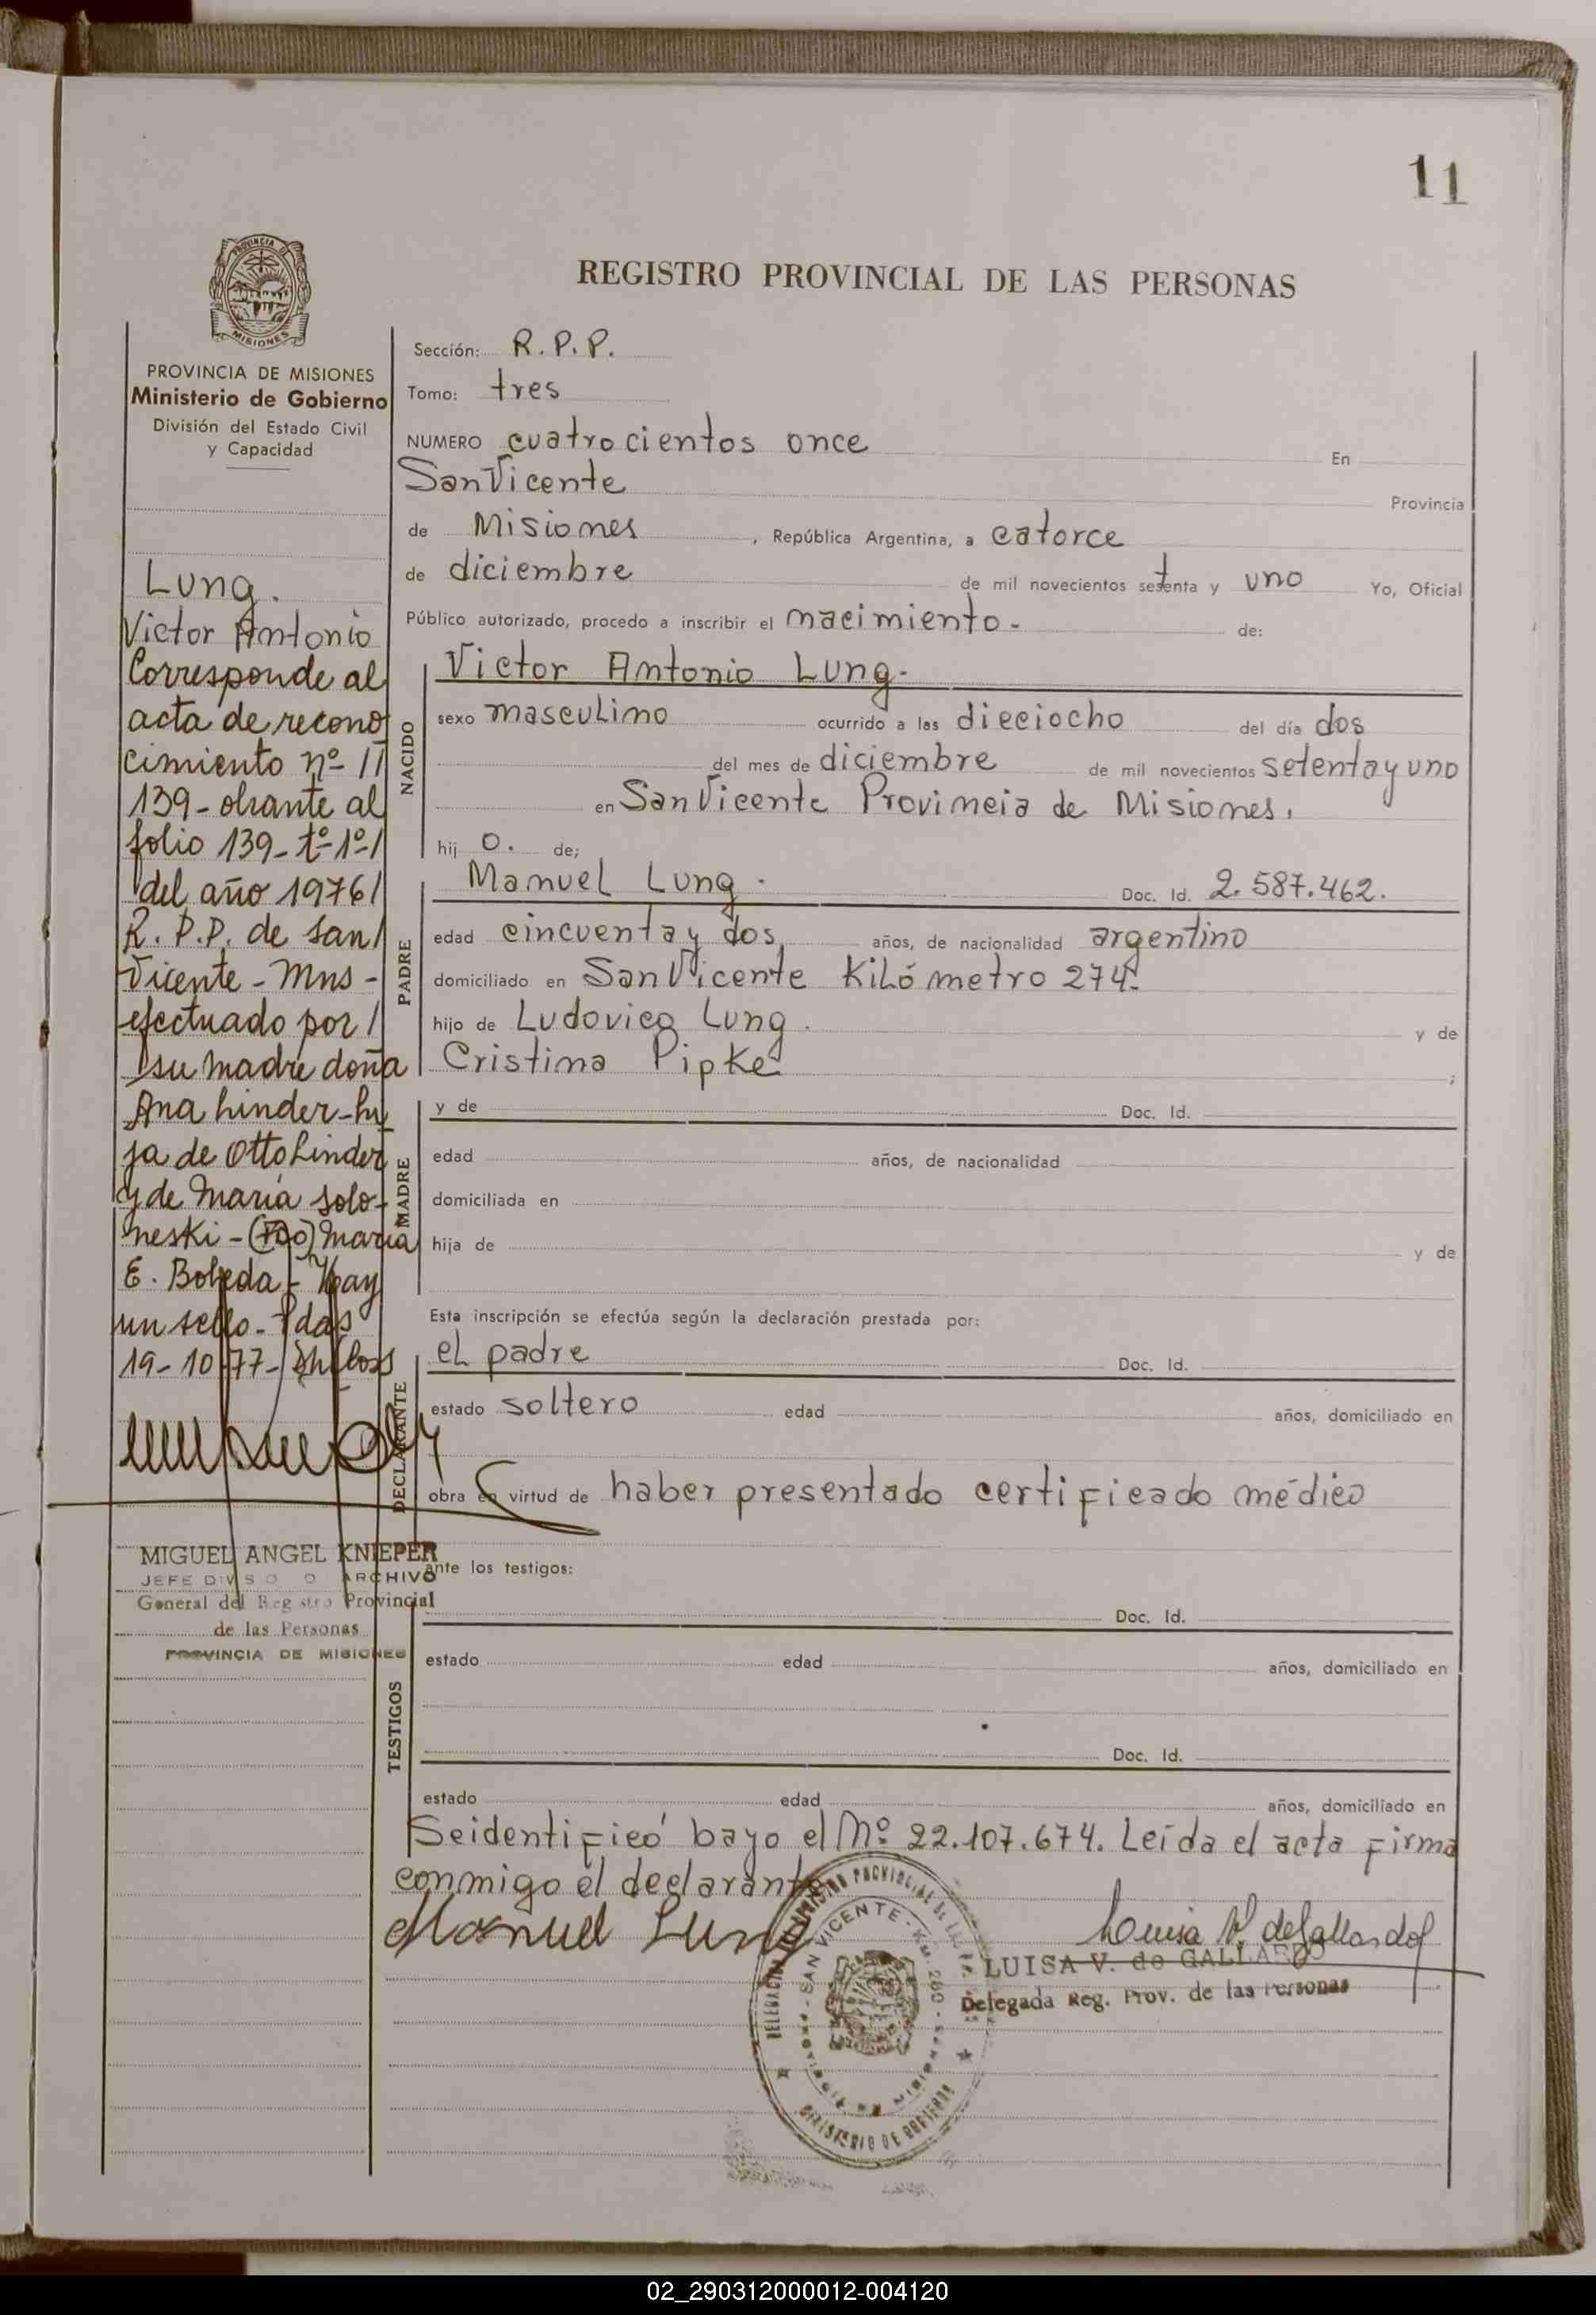 11
REGISTRO PROVINCIAL DE LAS PERSONAS
PROVINCIA DE MISIONES
Ministerio de Gobierno
División del Estado Civil
y Capacidad
Lung.
Victor Antonio
Corresponde al
acta de recono
cimiento nº 11
139 - obrante al
folio 139 - tº 1º /
del año 1976 /
R. P. P. de San /
Vicente - Mns -
efectuado por /
su madre doña
Ana Linder - hi
ja de Otto Linder
y de María Solo-
neski - (Fdo) María
E. Bobeda - Hay
un sello - Pdas
19-10-77-
MIGUEL ANGEL KNIEPER
JEFE DIVISIO O ARCHIVO
General del Registro Provincial
de las Personas
PROVINCIA DE MISIONES
Sección: R. P. P.
Tomo: tres
NUMERO cuatrocientos once En
San Vicente Provincia
de Misiones, República Argentina, a catorce
de diciembre de mil novecientos setenta y uno Yo, Oficial
Público autorizado, procedo a inscribir el nacimiento - de:
NACIDO
Victor Antonio Lung.
sexo masculino ocurrido a las dieciocho del día dos
del mes de diciembre de mil novecientos setenta y uno
en San Vicente Provincia de Misiones.
hij o. de;
PADRE
Manuel Lung. Doc. Id. 2.587.462.
edad cincuenta y dos años, de nacionalidad argentino
domiciliado en San Vicente Kilómetro 274.
hijo de Ludovico Lung. y de
Cristina Pipke ;
MADRE
y de Doc. Id.
edad años, de nacionalidad
domiciliada en
hija de y de
Esta inscripción se efectúa según la declaración prestada por:
DECLARANTE
el padre Doc. Id.
estado soltero edad años, domiciliado en
obra en virtud de haber presentado certificado médico
ante los testigos:
TESTIGOS
Doc. Id.
estado edad años, domiciliado en
Doc. Id.
estado edad años, domiciliado en
Se identificó bajo el Nº 22.107.674. Leída el acta firma
conmigo el declarante
Manuel Lung
Luisa V. de Gallardo
LUISA V. de GALLARDO
Delegada Reg. Prov. de las Personas
SAN VICENTE - KM. 260
MINISTERIO DE GOBIERNO
02_290312000012-004120